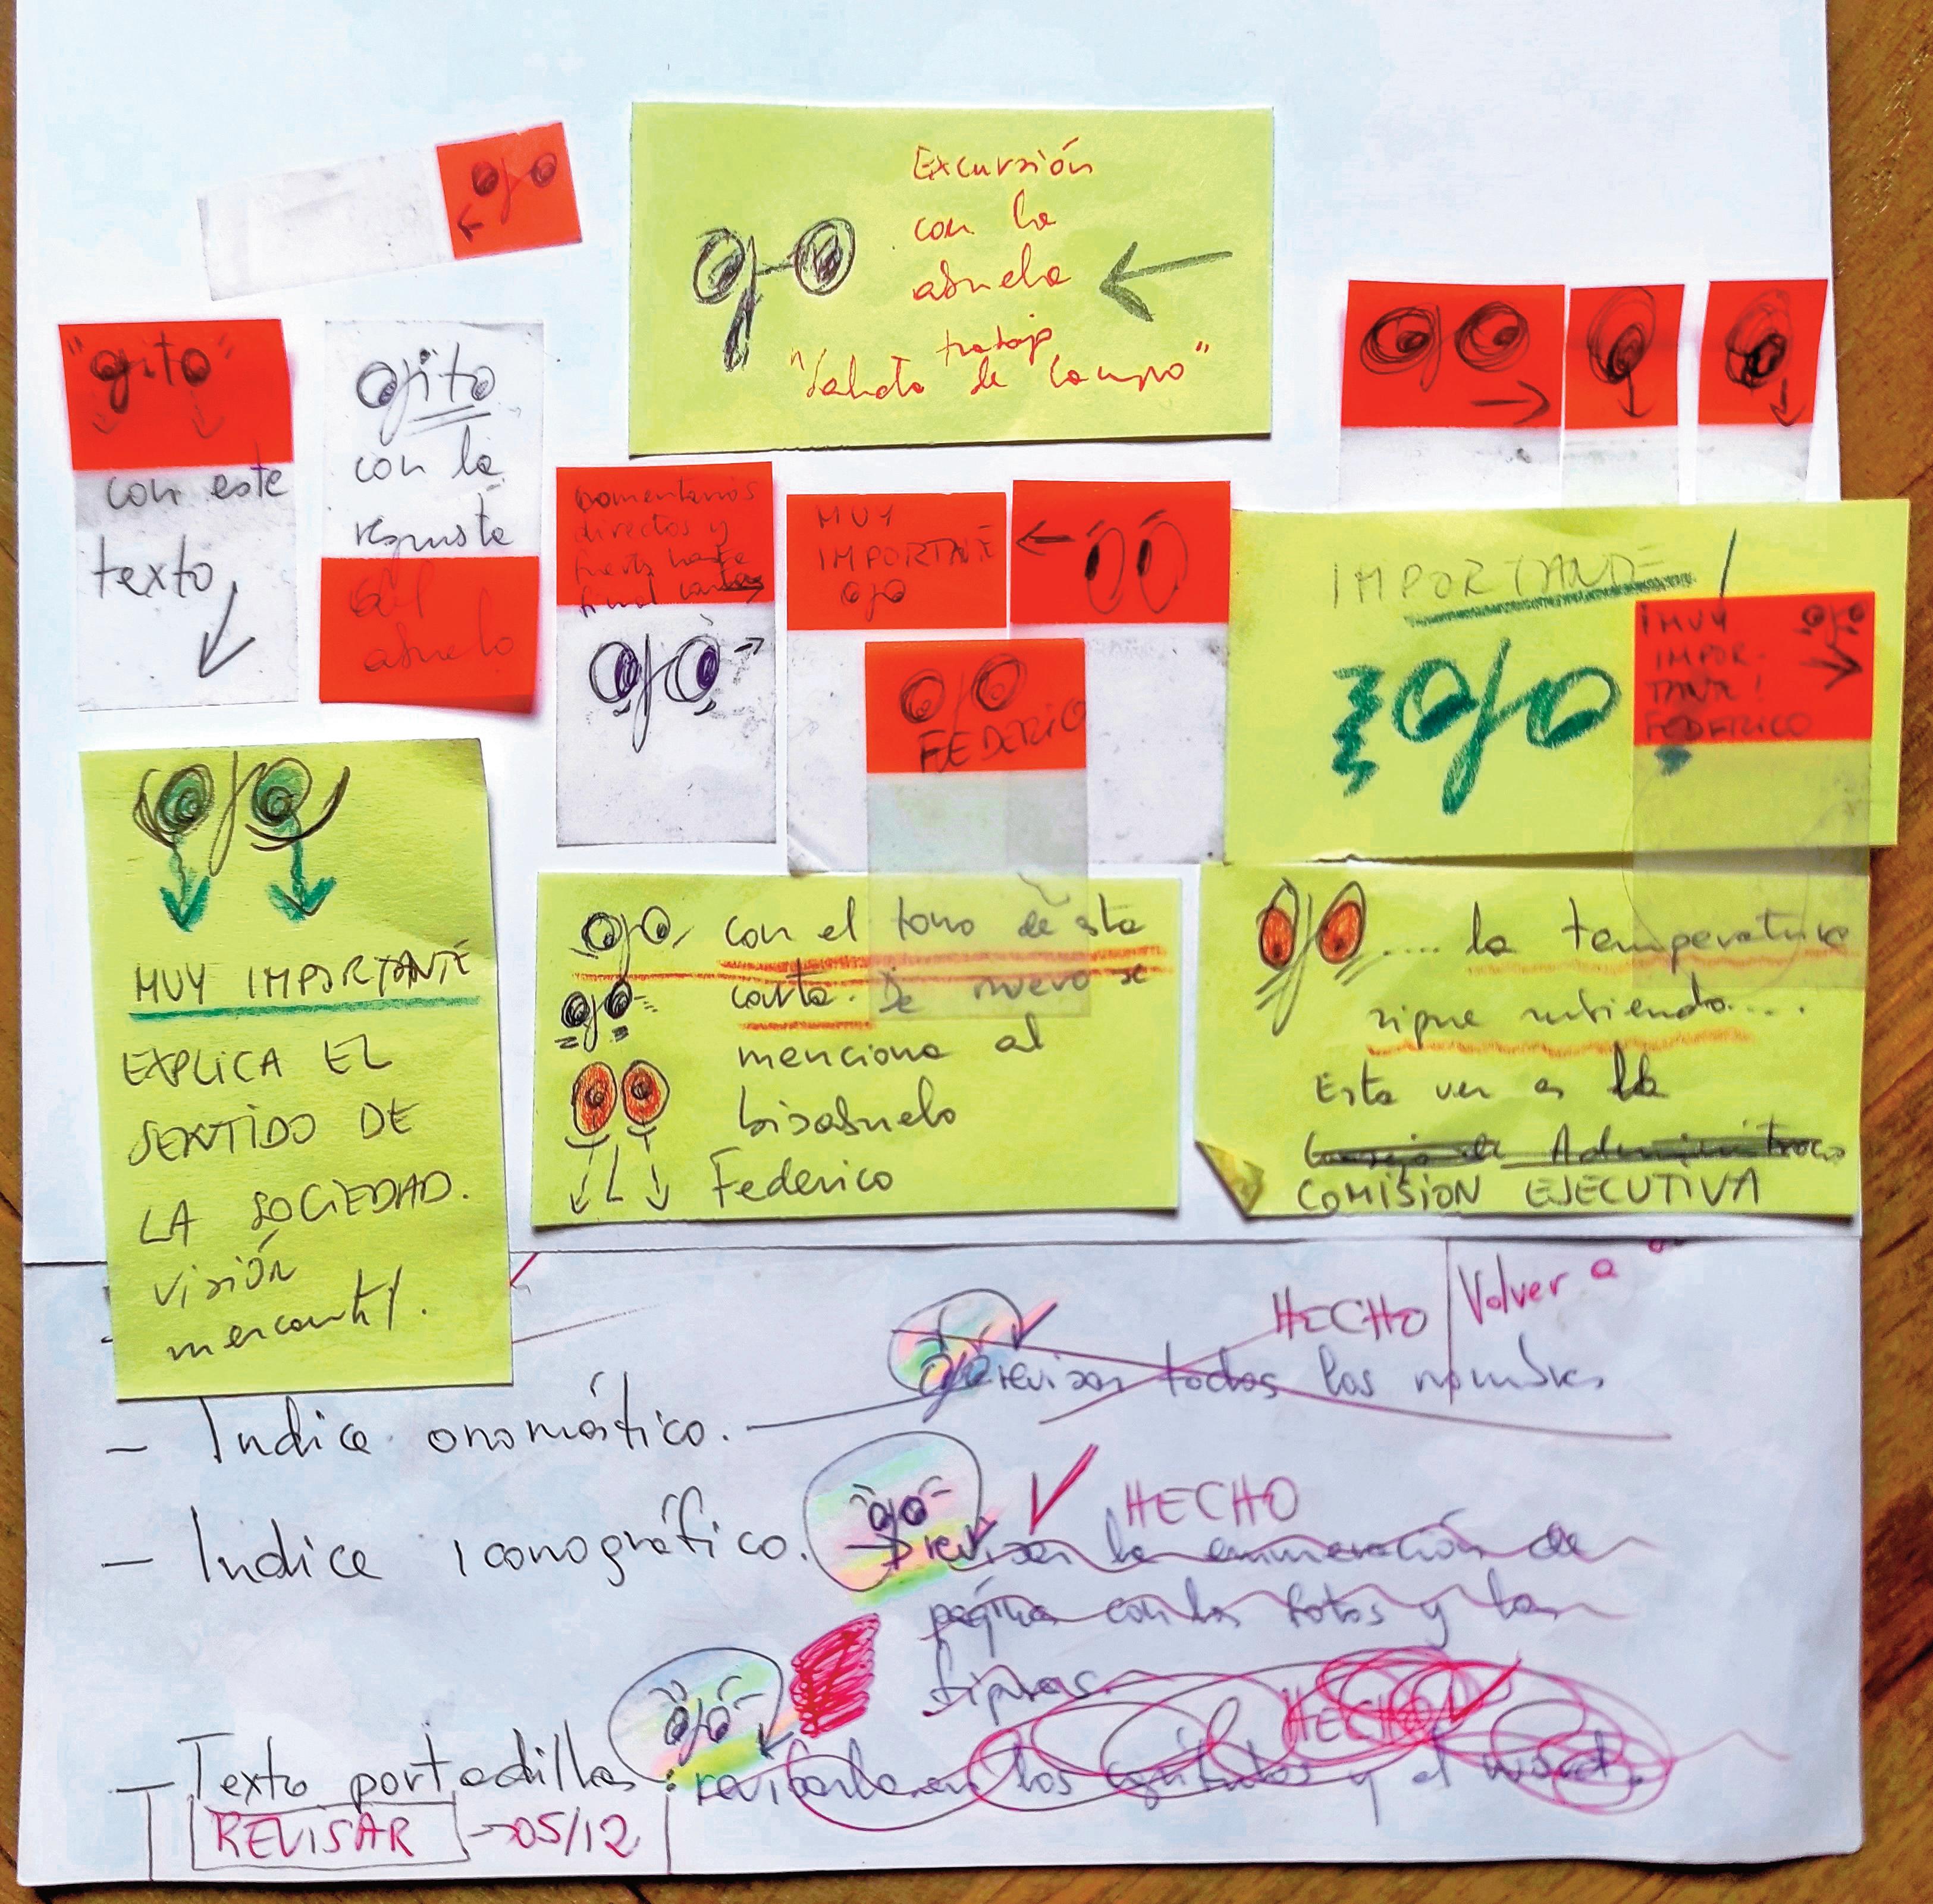 ojo
ojo
Excursión
con la
abuela
trabajo
"Saluda de Campo"
"ojito"
con este
texto,
ojito
con la
respuesta
del
abuelo
comentarios
directos y
fuerte hasta
final
ojo
MUY
IMPORTANTE
ojo
ojo
FEDERICO
ojo
IMPORTANTE
ojo
¡MUY
IMPOR-
TANTE!
FEDERICO
ojo
ojo
MUY IMPORTANTE
EXPLICA EL
SENTIDO DE
LA SOCIEDAD.
visión
mercantil.
ojo con el tono de esta
ojo carta. De nuevo se
menciona al
bisabuelo
Federico
ojo .... la temperatura
sigue subiendo....
Esta vez es la
Consejo de Administración
COMISION EJECUTIVA
HECHO Volver a
- Indice onomástico. ojo revisar todos los nombres
HECHO
- Indice iconográfico. ojo revisar la enumeración de
página con las fotos y las
firmas.
HECHO
- Texto portadillas: ojo revisarla en los capítulos y el word.
REVISAR → 05/12